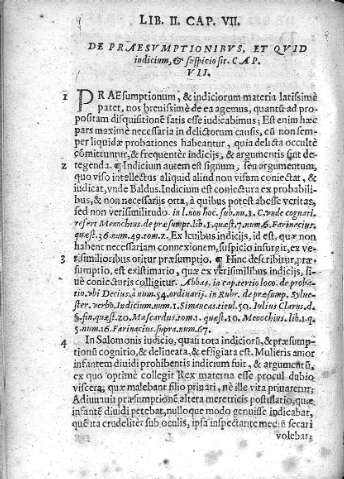 LIB. II. CAP. VII.
DE PRAESVMPTIONIBVS, ET QVID
indicium, & suspicio sit. CAP.
VII.
1 PRAEsumptionum, & indiciorum materia latissimè
patet, nos breuissimè de ea agemus, quantũ ad pro
positam disquisitionẽ satis esse iudicabimus; Est enim hæc
pars maximè necessaria in delictorum causis, cũ non sem-
per liquidæ probationes habeantur, quia delicta occultè
cõmittuntur, & frequenter indicijs, & argumentis sunt de-
2 tegenda. ¶ Indicium autem est signum, seu argumentum,
quo viso intellectus aliquid aliud non visam coniectat, &
iudicat, vnde Baldus. Indicium est coniectura ex probabili-
bus, & non necessarijs orta, à quibus potest abesse veritas,
sed non verisimilitudo. in l. non hoc. sub. nu. 1. C. vnde cognati.
refert Menochius de præsumpt. lib. 1. quæst. 7. num. 6. Farinacius
quæst. 36. num. 49. tom. 2. Ex leuibus indicijs, id est, quæ non
habent necessariam connexionem, suspicio insurgit, ex ve-
3 risimilioribus oritur præsumptio. ¶ Hinc describitur, præ
sumptio, est existimatio, quæ ex verisimilibus indicijs, si-
uè coniecturis colligitur. Abbas. in cap. tertio loco. de proba-
tio. vbi Decius à num. 54. ordinarij. in Rubr. de præsump. Sylue-
ster. verbo. Indicium. num. 1. Iulius Clarus. d.
§. fin. quæst. 20. Mascardus. tom. 1. quæst. 10. Menochius. lib. 1. q.
5. num. 16. Farinacius. supra. num. 67.
4 In Salomonis iudicio, quasi tota indiciorũ, & præsump-
tionũ cognitio, & delineata, & effigiata est. Mulieris amor
infantem diuidi prohibentis indicium fuit, & argumentũ,
ex quo optimè collegit Rex materna esse procul dubio
viscera, quæ malebant filio priuari, nè ille vita priuaretur;
Adiuuit præsumptionẽ altera meretricis postulatio, quæ
infantẽ diuidi petebat, nulloque modo genuisse indicabat,
quẽ ita crudeliter sub oculis, ipsa inspectante medię secari
volebat;